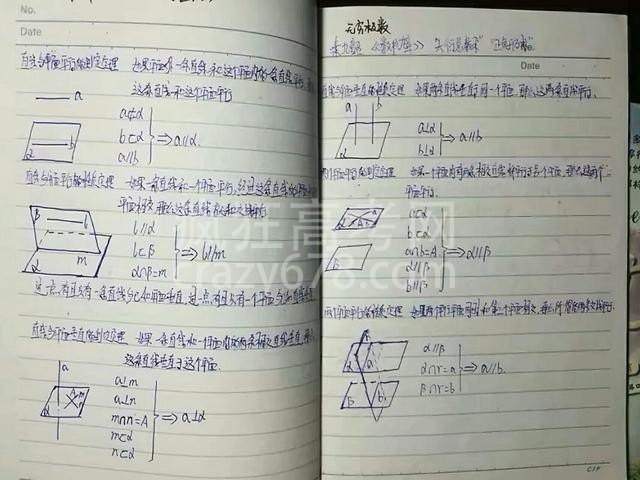 No.
Date
直线与平面平行的判定定理 如果平面外一条直线和这个平面内的一条直线平行,那么
这条直线和这个平面平行
a
a⊄α
b⊂α
a∥b
⇒a∥α
α
b
直线与平面平行的性质定理 如果一条直线和一个平面平行,经过这条直线的平面和这个
平面相交,那么这条直线就和交线平行
l∥α
l⊂β
α∩β=m
⇒l∥m
β
l
α
m
过一点有且只有一条直线与已知平面垂直,过一点有且只有一个平面与已知直线垂直
直线与平面垂直的判定定理 如果一条直线和一个平面内的两条相交直线垂直,那么
这条直线垂直于这个平面
a
α
a⊥m
a⊥n
m∩n=A
m⊂α
n⊂α
⇒a⊥α
无穷级数
Date
直线与平面垂直的性质定理 如果两条直线垂直于同一个平面,那么这两条直线平行.
a
b
α
a⊥α
b⊥α
⇒a∥b
两个平面平行的判定定理 如果一个平面内有两条相交直线都平行于另一个平面,那么这两个
平面平行.
b⊂α
a∩b=A
a∥β
b∥β
⇒α∥β
β
两个平面平行的性质定理 如果两个平行平面同时和第三个平面相交,那么所得的两条交线平行.
α∥β
α∩r=a
β∩r=b
⇒a∥b.
疯狂高考网
crazy678.com